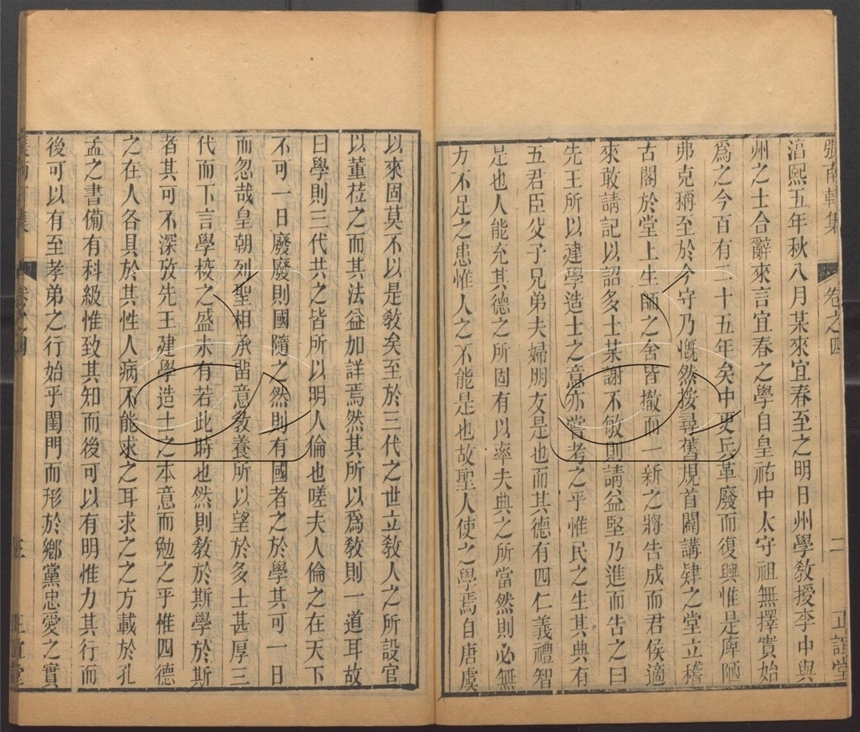 張南軒集 卷之四 二 正誼堂
淳熙五年秋八月某來宜春至之明日州學教授李中與
州之士合辭來言宜春之學自皇祐中太守祖無擇實始
為之今百有二十五年矣中更兵革廢而復興惟是庳陋
弗克稱至於今守乃慨然按尋舊規首闢講肄之堂立稽
古閣於堂上生師之舍皆撤而一新之將告成而君侯適
來敢請記以詔多士某謝不敏則請益堅乃進而告之曰
先王所以建學造士之意亦嘗考之乎惟民之生其典有
五君臣父子兄弟夫婦朋友是也而其德有四仁義禮智
是也人能充其德之所固有以率夫典之所當然則必無
力不足之患惟人之不能是也故聖人使之學焉自唐虞
以來固莫不以是教矣至於三代之世立教人之所設官
以董莅之而其法益加詳焉然其所以爲教則一道耳故
曰學則三代共之皆所以明人倫也嗟夫人倫之在天下
不可一日廢廢則國隨之然則有國者之於學其可一日
而忽哉皇朝列聖相承留意教養所以望於多士甚厚三
代而下言學校之盛未有若此時也然則教於斯學於斯
者其可不深攷先王建學造士之本意而勉之乎惟四德
之在人各具於其性人病不能求之耳求之之方載於孔
孟之書備有科級惟致其知而後可以有明惟力其行而
後可以有至孝弟之行始乎閨門而形於鄉黨忠愛之實
卷之四 正誼堂